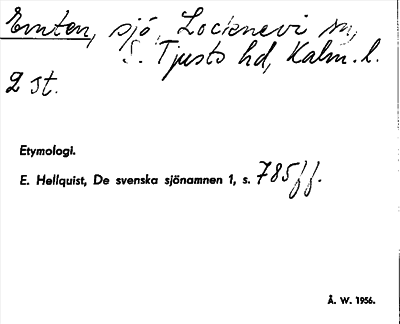 Emten, sjö, Locknevi sn,
S. Tjusts hd, Kalm. l.
2 st.
Etymologi.
E. Hellquist, De svenska sjönamnen 1, s. 785ff.
Å. W. 1956.